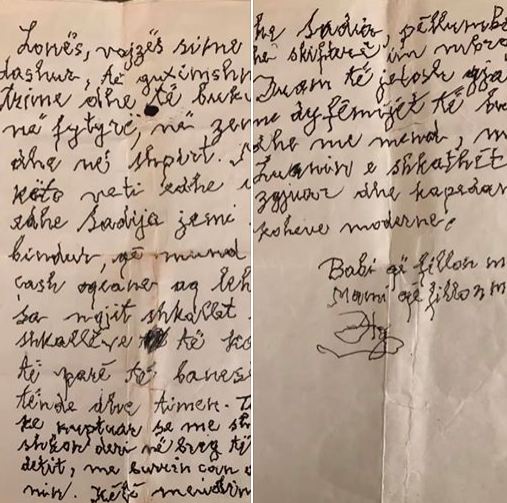 Lonës, vajzës sime
dashur, të guximshm
trime dhe të buku
në fytyrë, në zem
dhe në shpirt.
këto veti edhe
edhe Sadija jemi
bindur, që mund
cash oqeane aq leh
sa ngjit shkallët
shkallëve të ka
të parë të banes
tënde dhe timen.
ke kuptuar se me
shkon deri në breg të
detit, me burrin can
nin. Këtë
he Sadia, pëllumb
në skiftarë, im mbre
Iuam të jetosh gja
me dy fëmijët të bu
dhe me mend, m
e shkathët
zgjuar dhe kapedan
kohëve moderne.
Babi që fillon m
Mami që fillon m